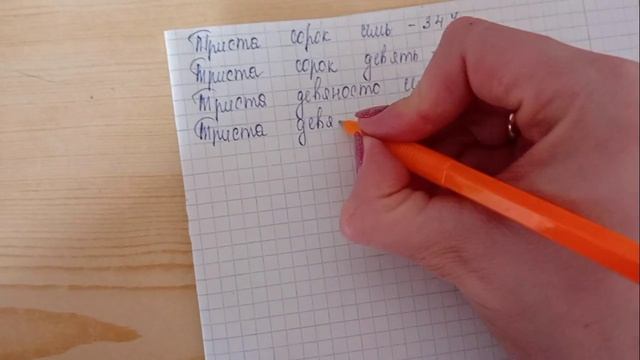 Триста сорок семь - 347
Триста сорок девять -
Триста девяносто
Триста девя